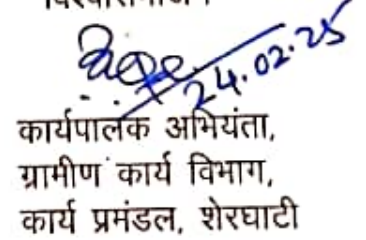 24.02.25
कार्यपालक अभियंता,
ग्रामीण कार्य विभाग,
कार्य प्रमंडल, शेरघाटी